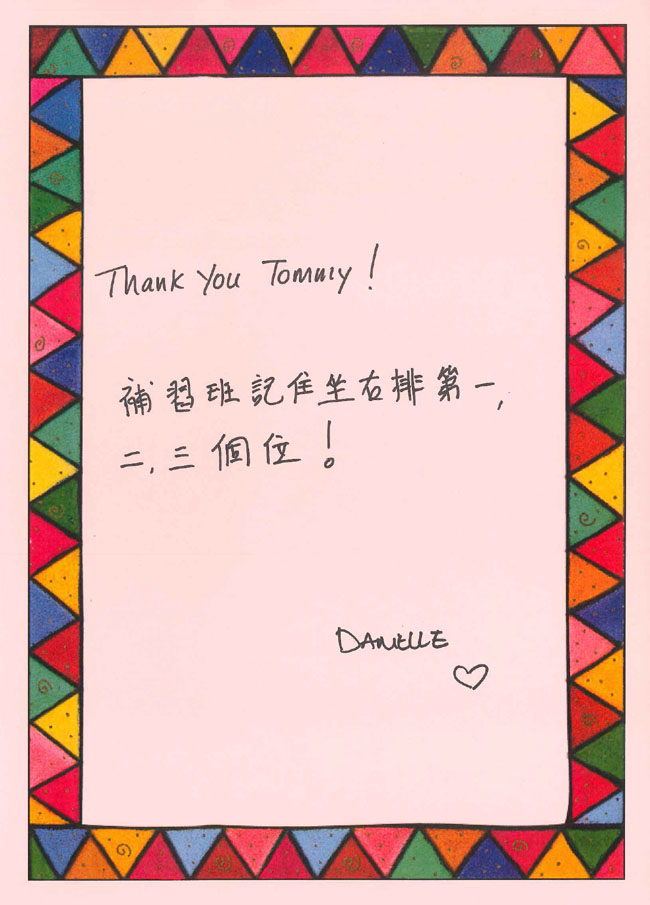 Thank You Tommy!
補習班記住坐右排第一,
二,三個位!
DANIELLE